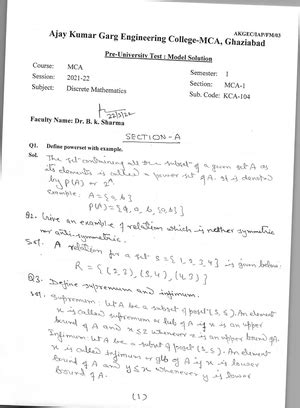 AKGEC/IAP/FM/03
Ajay Kumar Garg Engineering College-MCA, Ghaziabad
Pre-University Test : Model Solution
Course: MCA Semester: 1
Session: 2021-22 Section: MCA-1
Subject: Discrete Mathematics Sub. Code: KCA-104
22/3/22
Faculty Name: Dr. B. k. Sharma
SECTION-A
Q1. Define powerset with example.
Sol. The set containing all the subset of a given set A as
its elements is called a power set of A. It is denoted
by P(A) or 2^A
Example: A = {a, b}
P(A) = {φ, a, b, {a,b}}
Q2. Give an example of relation which is neither symmetric
nor anti-symmetric.
Sol. A relation for a set S = {1, 2, 3, 4} is given below:
R = { (2,3), (3,4), (4,3) }
Q3. Define supremum and infimum.
Sol: Supremum: let A be a subset of poset (S, ≤). An element
x is called supremum or lub of A if x is an upper
bound of A and x ≤ z whenever z is an upper bound of A.
Infimum: let A be a subset of poset (S, ≤). An element
x is called infimum or glb of A if x is lower
bound of A and y ≤ x whenever y is lower
bound of A.
(1)